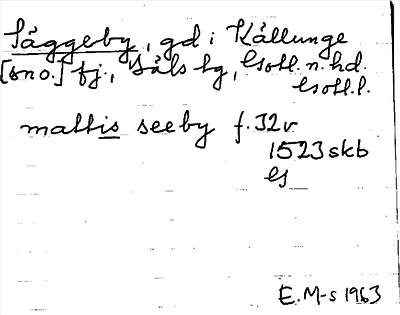 Säggeby, gd i Källunge
[sno.] fj., Bäls tg, Gotl. n. hd.
Gotl. l.
mattis seeby f. 32v
1523 skb
G
E. M-s 1963